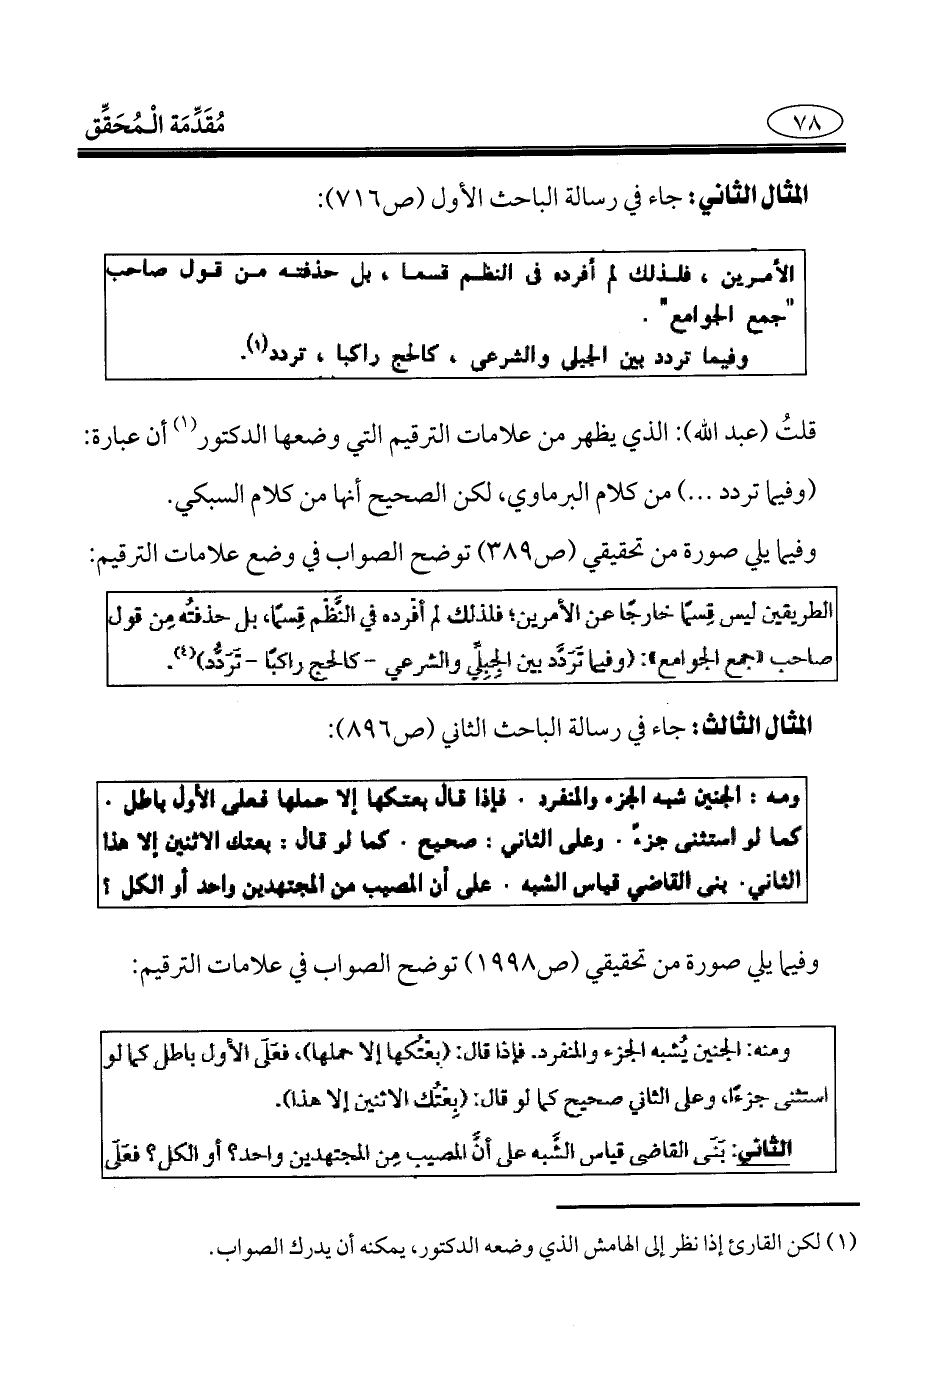 ٧٨
مُقَدِّمَة الْمُحَقِّق
المثال الثاني: جاء في رسالة الباحث الأول (ص٧١٦):
الأمرين ، فلذلك لم أفرده فى النظم قسما ، بل حذفته من قول صاحب
"جمع الجوامع" .
وفيما تردد بين الجبلى والشرعى ، كالحج راكبا ، تردد(١).
قلتُ (عبد الله): الذي يظهر من علامات الترقيم التي وضعها الدكتور(١) أن عبارة:
(وفيما تردد ...) من كلام البرماوي، لكن الصحيح أنها من كلام السبكي.
وفيما يلي صورة من تحقيقي (ص٣٨٩) توضح الصواب في وضع علامات الترقيم:
الطريقين ليس قِسمًا خارجًا عن الأمرين؛ فلذلك لم أفرده في النَّظْم قِسمًا، بل حذفتُه مِن قول
صاحب «جمع الجوامع»: (وفيما تَرَدَّد بين الجِبِلِّي والشرعي - كالحج راكبًا - تَرَدُّد)(٤).
المثال الثالث: جاء في رسالة الباحث الثاني (ص٨٩٦):
ومه : الجنين شبه الجزء والمنفرد . فإذا قال بعتكها إلا حملها فعلى الأول باطل .
كما لو استثنى جزءً . وعلى الثاني : صحيح . كما لو قال : بعتك الاثنين إلا هذا
الثاني. بنى القاضي قياس الشبه . على أن المصيب من المجتهدين واحد أو الكل ؟
وفيما يلي صورة من تحقيقي (ص١٩٩٨) توضح الصواب في علامات الترقيم:
ومنه: الجنين يُشبه الجزء والمنفرد. فإذا قال: (بِعْتُكها إلا حملها)، فعَلَى الأول باطل كما لو
استثنى جزءًا، وعلى الثاني صحيح كما لو قال: (بِعْتُك الاثنين إلا هذا).
الثاني: بَنَى القاضى قياس الشَّبه على أنَّ المصيب مِن المجتهدين واحد؟ أو الكل؟ فعَلَى
(١) لكن القارئ إذا نظر إلى الهامش الذي وضعه الدكتور، يمكنه أن يدرك الصواب.